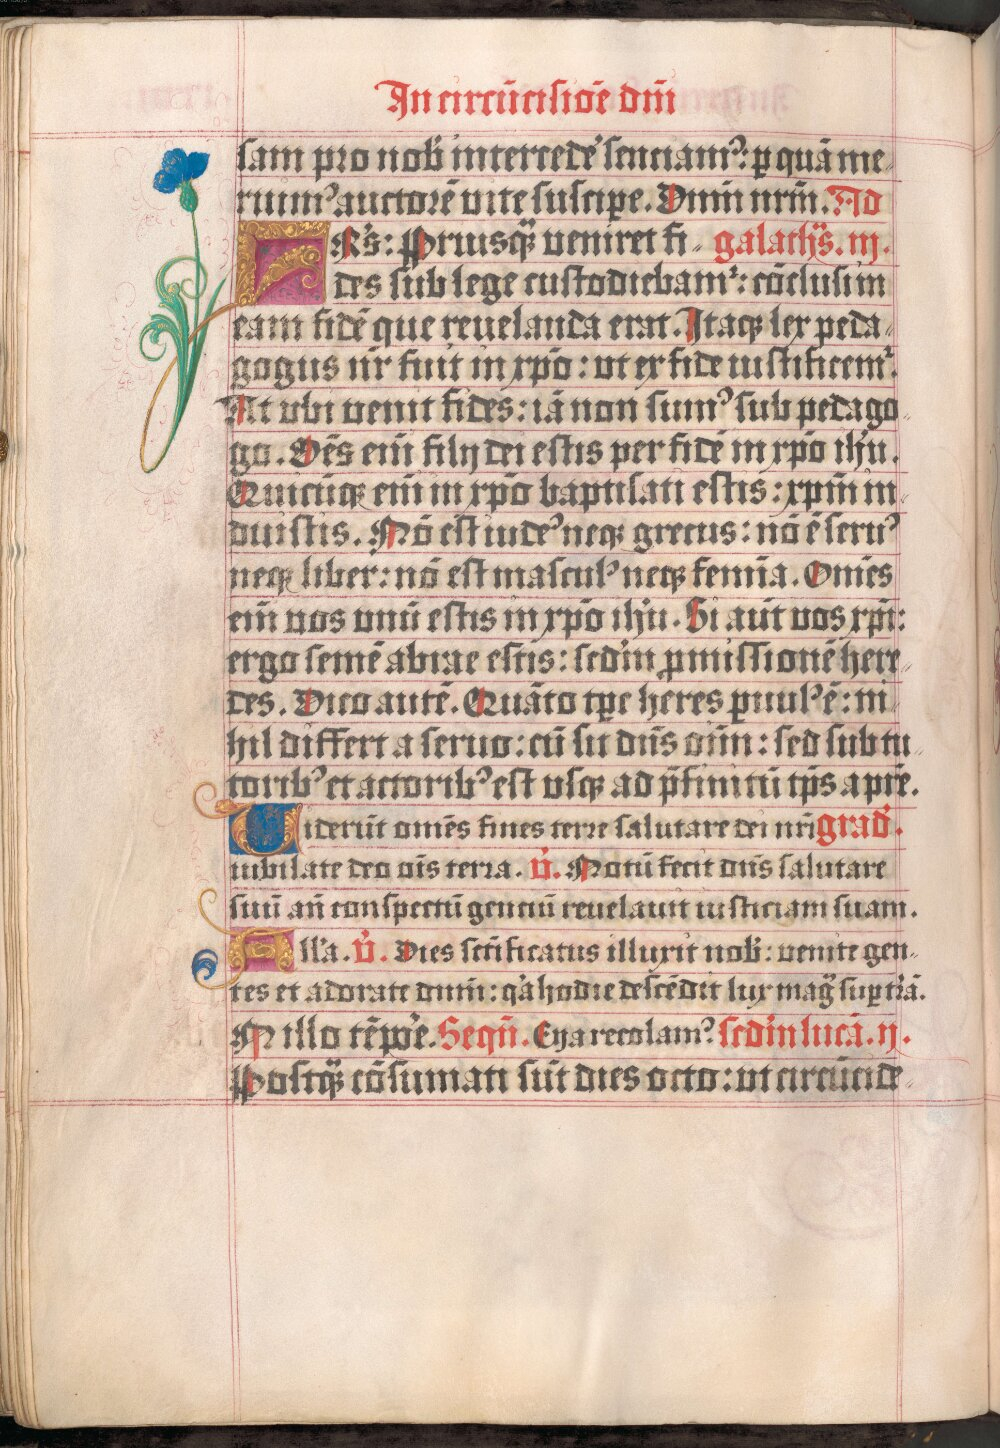 In circūcisiōe dn̄i
sam pro nob̾ intercede᷒ senciamꝰ: ꝑ quā me-
ruimꝰ auctorē vite suscipe. Dnm̄ nrm̄. Ad
FRs̄: Priusꝙ̄ veniret fi- galathas. iij.
des sub lege custodiebamᷣ: cōclusi in
eam fidē que reuelanda erat. Itaqꝫ lex peda-
gogus nr̄ fuit in xp̄o: vt ex fide iustificemᷣ.
At vbi venit fides: iā non sumꝰ sub pedago-
go. Oēs em̄ filij dei estis per fidē in xp̄o ih̄u.
Quicūqꝫ em̄ in xp̄o baptisati estis: xpm̄ in-
duistis. Nō est iudeꝰ neqꝫ grecus: nō ē seruꝰ
neqꝫ liber: nō est masculꝰ neqꝫ femīa. Omēs
em̄ vos vnū estis in xp̄o ih̄u. Si aūt vos xp̄i:
ergo semē abrae estis: sedm̾ ꝓmissionē here-
des. Dico autē. Quāto tp̄e heres paruulꝰ ē: ni-
hil differt a seruo: cū sit dn̄s oīm: sed sub tu-
toribꝰ et actoribꝰ est vsqꝫ ad p̄finitū tp̄s a pr̄e.
Viderūt omēs fines terre salutare dei nr̄i grad̾.
iubilate deo oīs terra. V̾. Notū fecit dn̄s salutare
suū an̄ conspectū genciū reuelauit iusticiam suam.
Alla. V̾. Dies sc̄ificatus illuxit nob̾: venite gen-
tes et adorate dnm̄: qa hodie descēdit lux mag̾ suꝑ t̾rā.
IN illo tēpo᷒e. Seqn̄. Eya recolamꝰ sedm̾ lucā. ij.
Postꝙ̄ cōsumati sūt dies octo: vt circūcide-